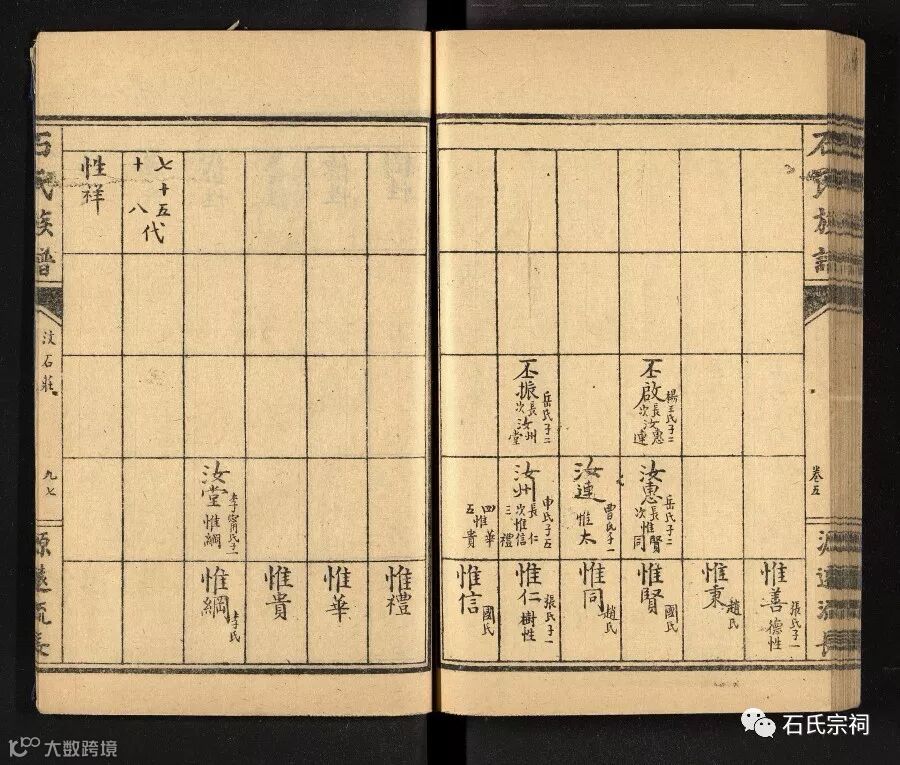 石氏族譜
卷五
源遠流長
丕啟
楊王氏子二
長汝惠
次連
丕振
岳氏子二
長汝州
次堂
汝惠
岳氏子二
長惟賢
次同
汝連
曹氏子一
惟太
汝州
申氏子五
長仁
次惟信
三禮
四惟華
五貴
惟善
張氏子一
德性
惟秉
趙氏
惟賢
國氏
惟同
趙氏
惟仁
張氏子一
樹性
惟信
國氏
汝堂
李甯氏子一
惟綱
惟禮
惟華
惟貴
惟綱
李氏
七十五代
十八
性祥
石氏族譜
汶石莊
九七
源遠流長
石氏宗祠
大数跨境